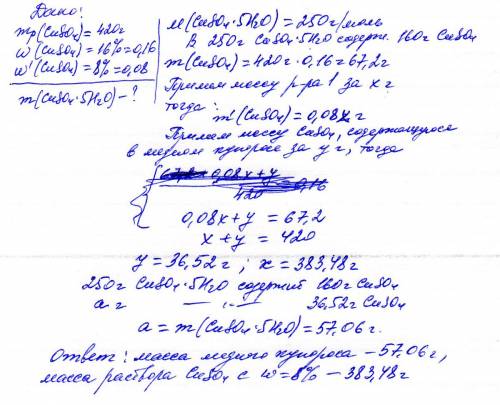 Дано:
mр(CuSO₄)=420г
ω(CuSO₄)=16%=0,16
ω'(CuSO₄)=8%=0,08
m(CuSO₄·5H₂O)-?
M(CuSO₄·5H₂O)=250г/моль
В 250г CuSO₄·5H₂O содерж. 160г CuSO₄
m(CuSO₄)=420г·0,16=67,2г
Примем массу р-ра 1 за x г
тогда:
m'(CuSO₄)=0,08x г
Примем массу CuSO₄, содержащуюся
в медном купоросе за y г, тогда
67,2 = 0,08x+y
420 =0,16
0,08x+y = 67,2
x+y = 420
y=36,52г; x=383,48г
250г CuSO₄·5H₂O содержит 160г CuSO₄
a г —〃— 36,52г CuSO₄
a=m(CuSO₄·5H₂O)=57,06г.
Ответ: масса медного купороса - 57,06г,
масса раствора CuSO₄ с ω=8% - 383,48г